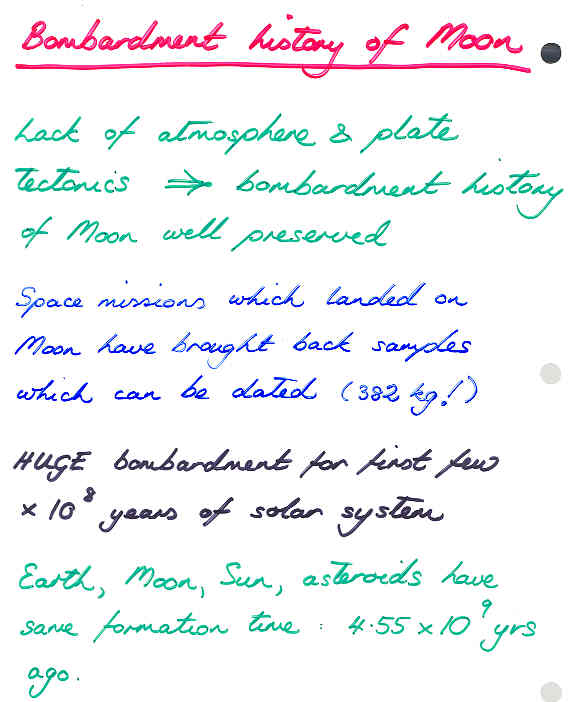 Bombardment history of Moon
Lack of atmosphere & plate
tectonics ⇒ bombardment history
of Moon well preserved
Space missions which landed on
Moon have brought back samples
which can be dated (382 kg!)
HUGE bombardment for first few
× 10⁸ years of solar system
Earth, Moon, Sun, asteroids have
same formation time : 4.55 × 10⁹ yrs
ago.